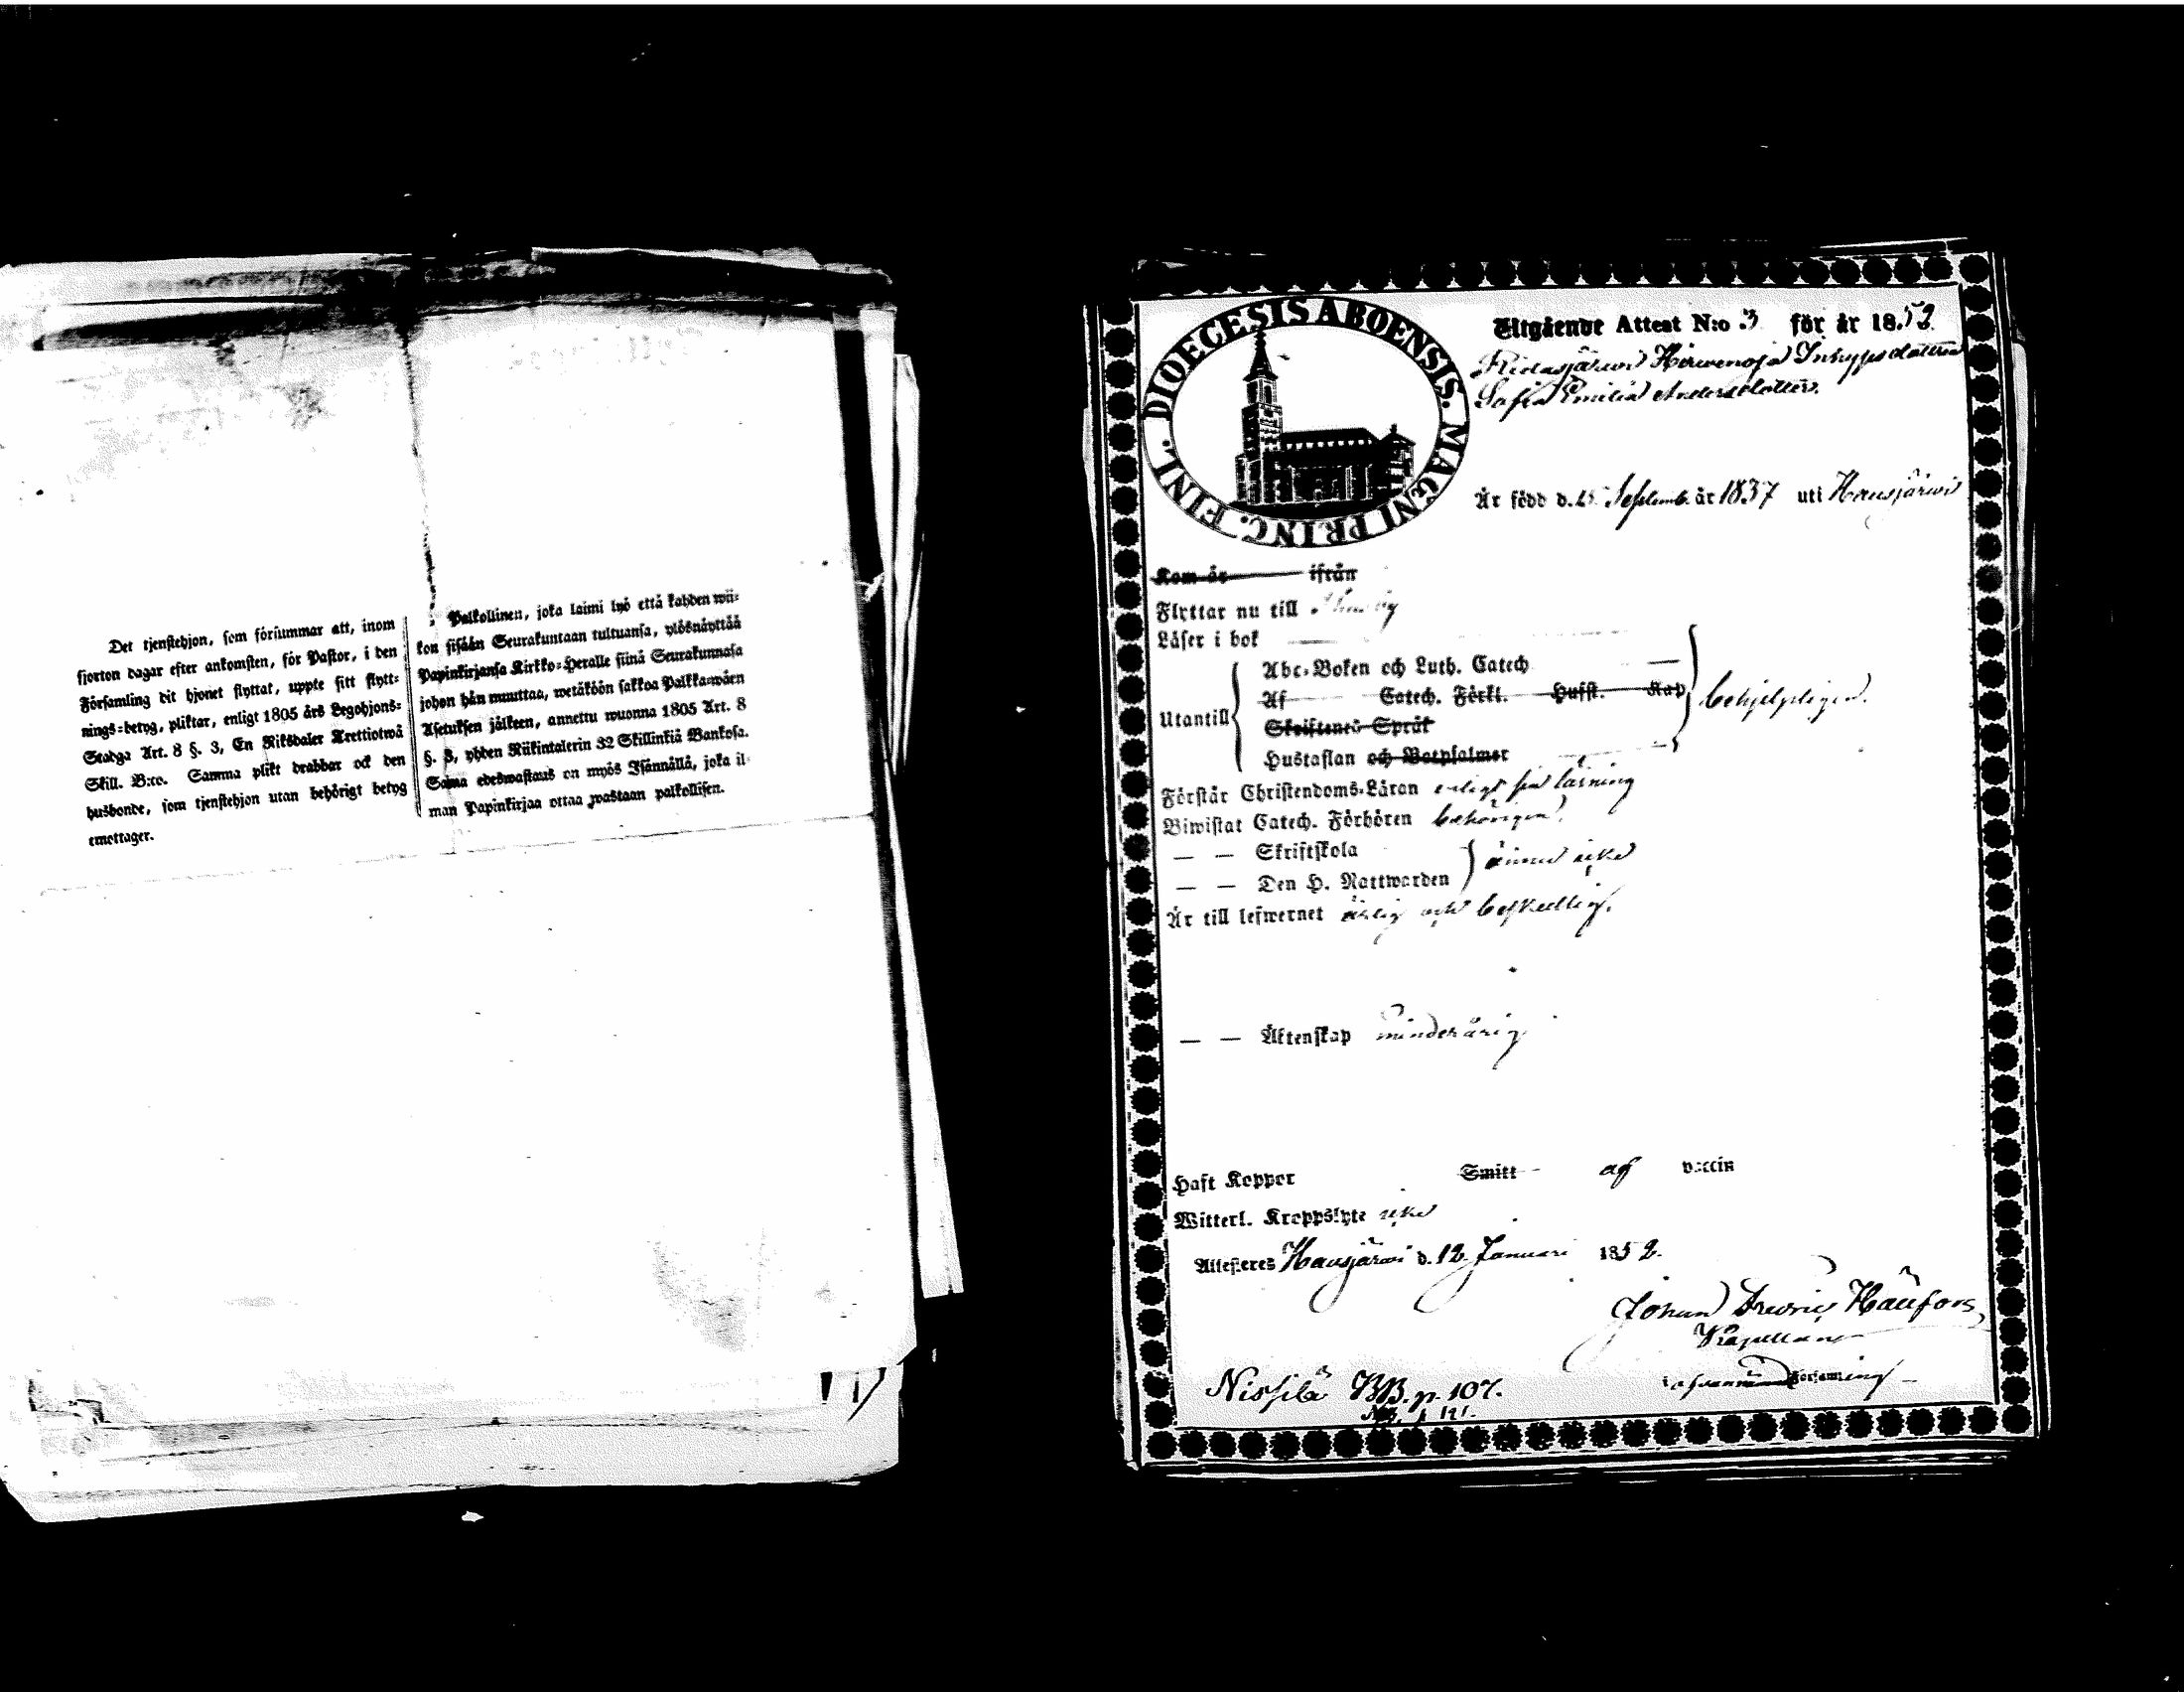 Det tjenstehjon, som försummar att, inom
fjorton dagar efter ankomsten, för Pastor, i den
Församling dit hjonet flyttat, uppte sitt flytt-
nings-betyg, pliktar, enligt 1805 års Legohjons-
Stadga Art. 8 §. 3, En Riksdaler Trettiotwå
Skill. B:co. Samma plikt drabbar ock den
husbonde, som tjenstehjon utan behörigt betyg
emottager.
Palkollinen, joka laimi lyö että kahden wii-
kon sisään Seurakuntaan tultuansa, ylösnäyttää
Papinkirjansa Kirkko-Heralle siinä Seurakunnasa
johon hän muuttaa, wetäköön sakkoa Palkkawäen
Asetuksen jälkeen, annettu wuonna 1805 Art. 8
§. 3, yhden Riikintalerin 32 Skillinkiä Bankosa.
Sama edeswastaus on myös Isännällä, joka il-
man Papinkirjaa ottaa wastaan palkollisen.
DIOECESIS ABOENSIS. MAGNI PRINC. FINL.
Utgående Attest N:o 3 för år 1852
Ridasjärwi Hirwenoja
Sofia Emilia Andersdotter.
Är född d. Septemb. år 1837 uti Hausjärwi
Kom år ifrån
Flyttar nu till
Läser i bok
Utantill
Abc-Boken och Luth. Catech
Af Catech. Förkl. Husst. Kap
Skriftenes Språk
Hustaflan och Botpsalmer
behjelpligen.
Förstår Christendoms-Läran enligt sin läsning
Biwistat Catech. Förhören behörigen.
— — Skriftskola
— — Den H. Nattwarden
ännu icke
Är till lefwernet ärlig och beskedlig.
— — Äktenskap minderårig
Haft Koppor Smitt af vaccin
Witterl. Kroppslyte icke
Attesteres Hausjärwi d. 12 Januari 1852.
Johan
Kapellan
Församling
Nissilä BB. p. 107.
p 121.